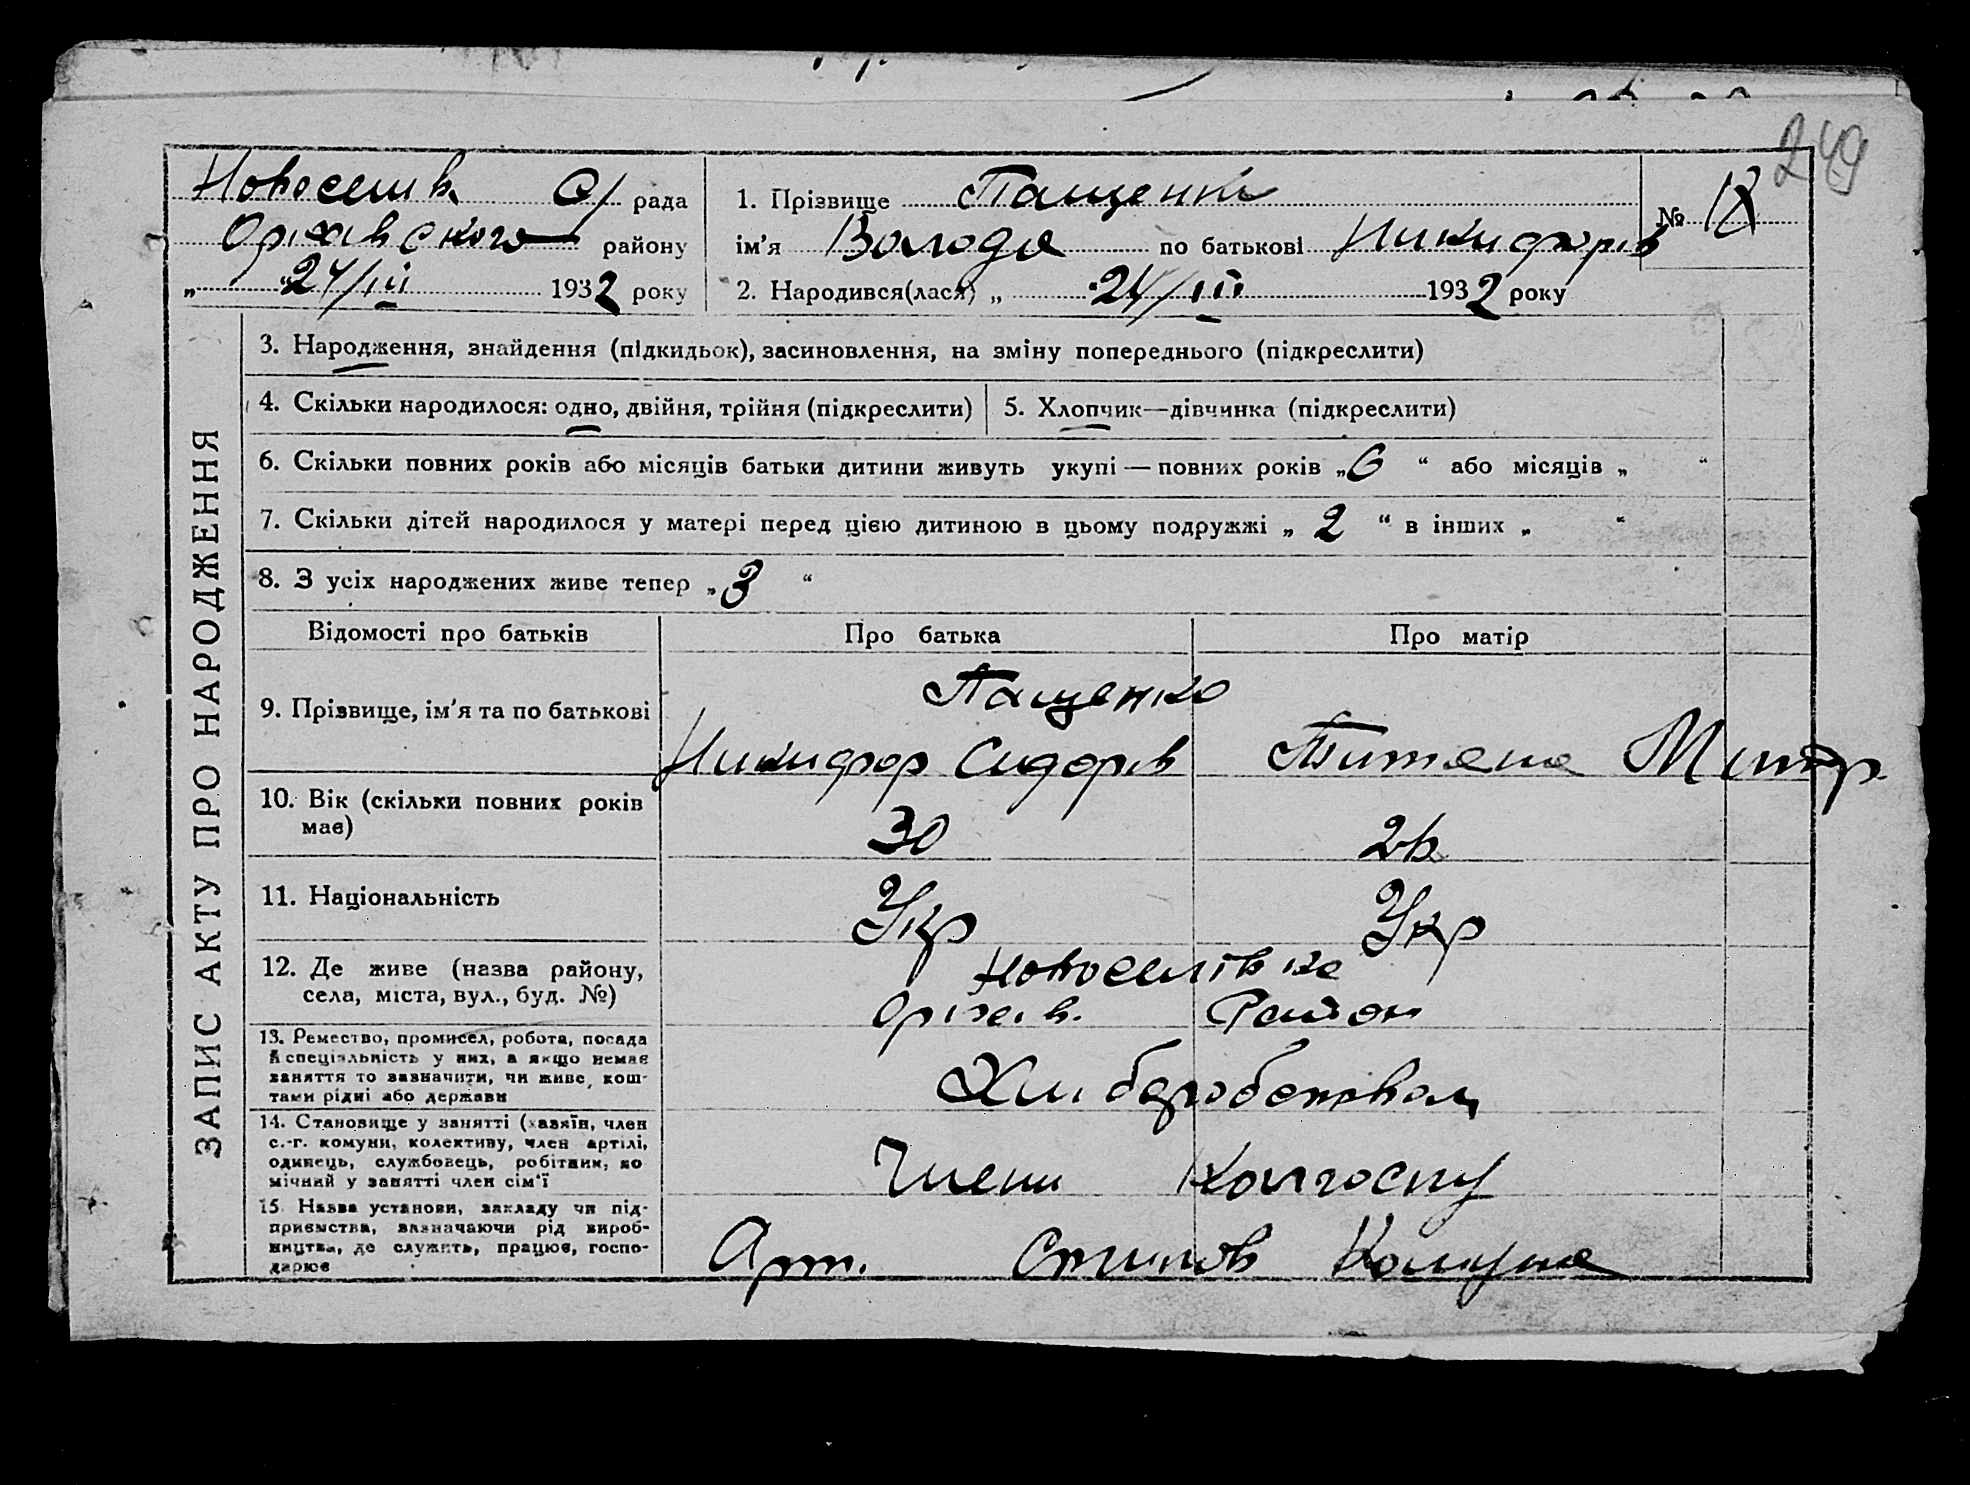 249
Новоселів. С/ рада
Оріхівського району
„ 24/III 1932 року
1. Прізвище Пащенко
№ 18
ім'я Володя по батькові Никифорів
2. Народився(лася) „ 24/III 1932 року
ЗАПИС АКТУ ПРО НАРОДЖЕННЯ
3. Народження, знайдення (підкидьок), засиновлення, на зміну попереднього (підкреслити)
4. Скільки народилося: одно, двійня, трійня (підкреслити)
5. Хлопчик—дівчинка (підкреслити)
6. Скільки повних років або місяців батьки дитини живуть укупі — повних років „6“ або місяців „ “
7. Скільки дітей народилося у матері перед цією дитиною в цьому подружжі „ 2 “ в інших „ “
8. З усіх народжених живе тепер „3 “
Відомості про батьків
Про батька
Про матір
9. Прізвище, ім'я та по батькові
Пащенко
Никифор Сидорів
Титяна Митр
10. Вік (скільки повних років
має)
30
26
11. Національність
Укр
Укр
12. Де живе (назва району,
села, міста, вул., буд. №)
Новоселівка
Оріхів. Район
13. Ремество, промисел, робота, посада
й спеціяльність у них, а якщо немає
заняття то зазначити, чи живе, кош-
тами рідні або держави
14. Становище у занятті (хазяїн, член
с.-г. комуни, колективу, член артілі,
одинець, службовець, робітник, по
мічний у занятті член сім'ї
Члени Колгоспу
15. Назва установи, закладу чи під-
приємства, зазначаючи рід вироб-
ництва, де служить, працює, госпо-
дарює
Арт.